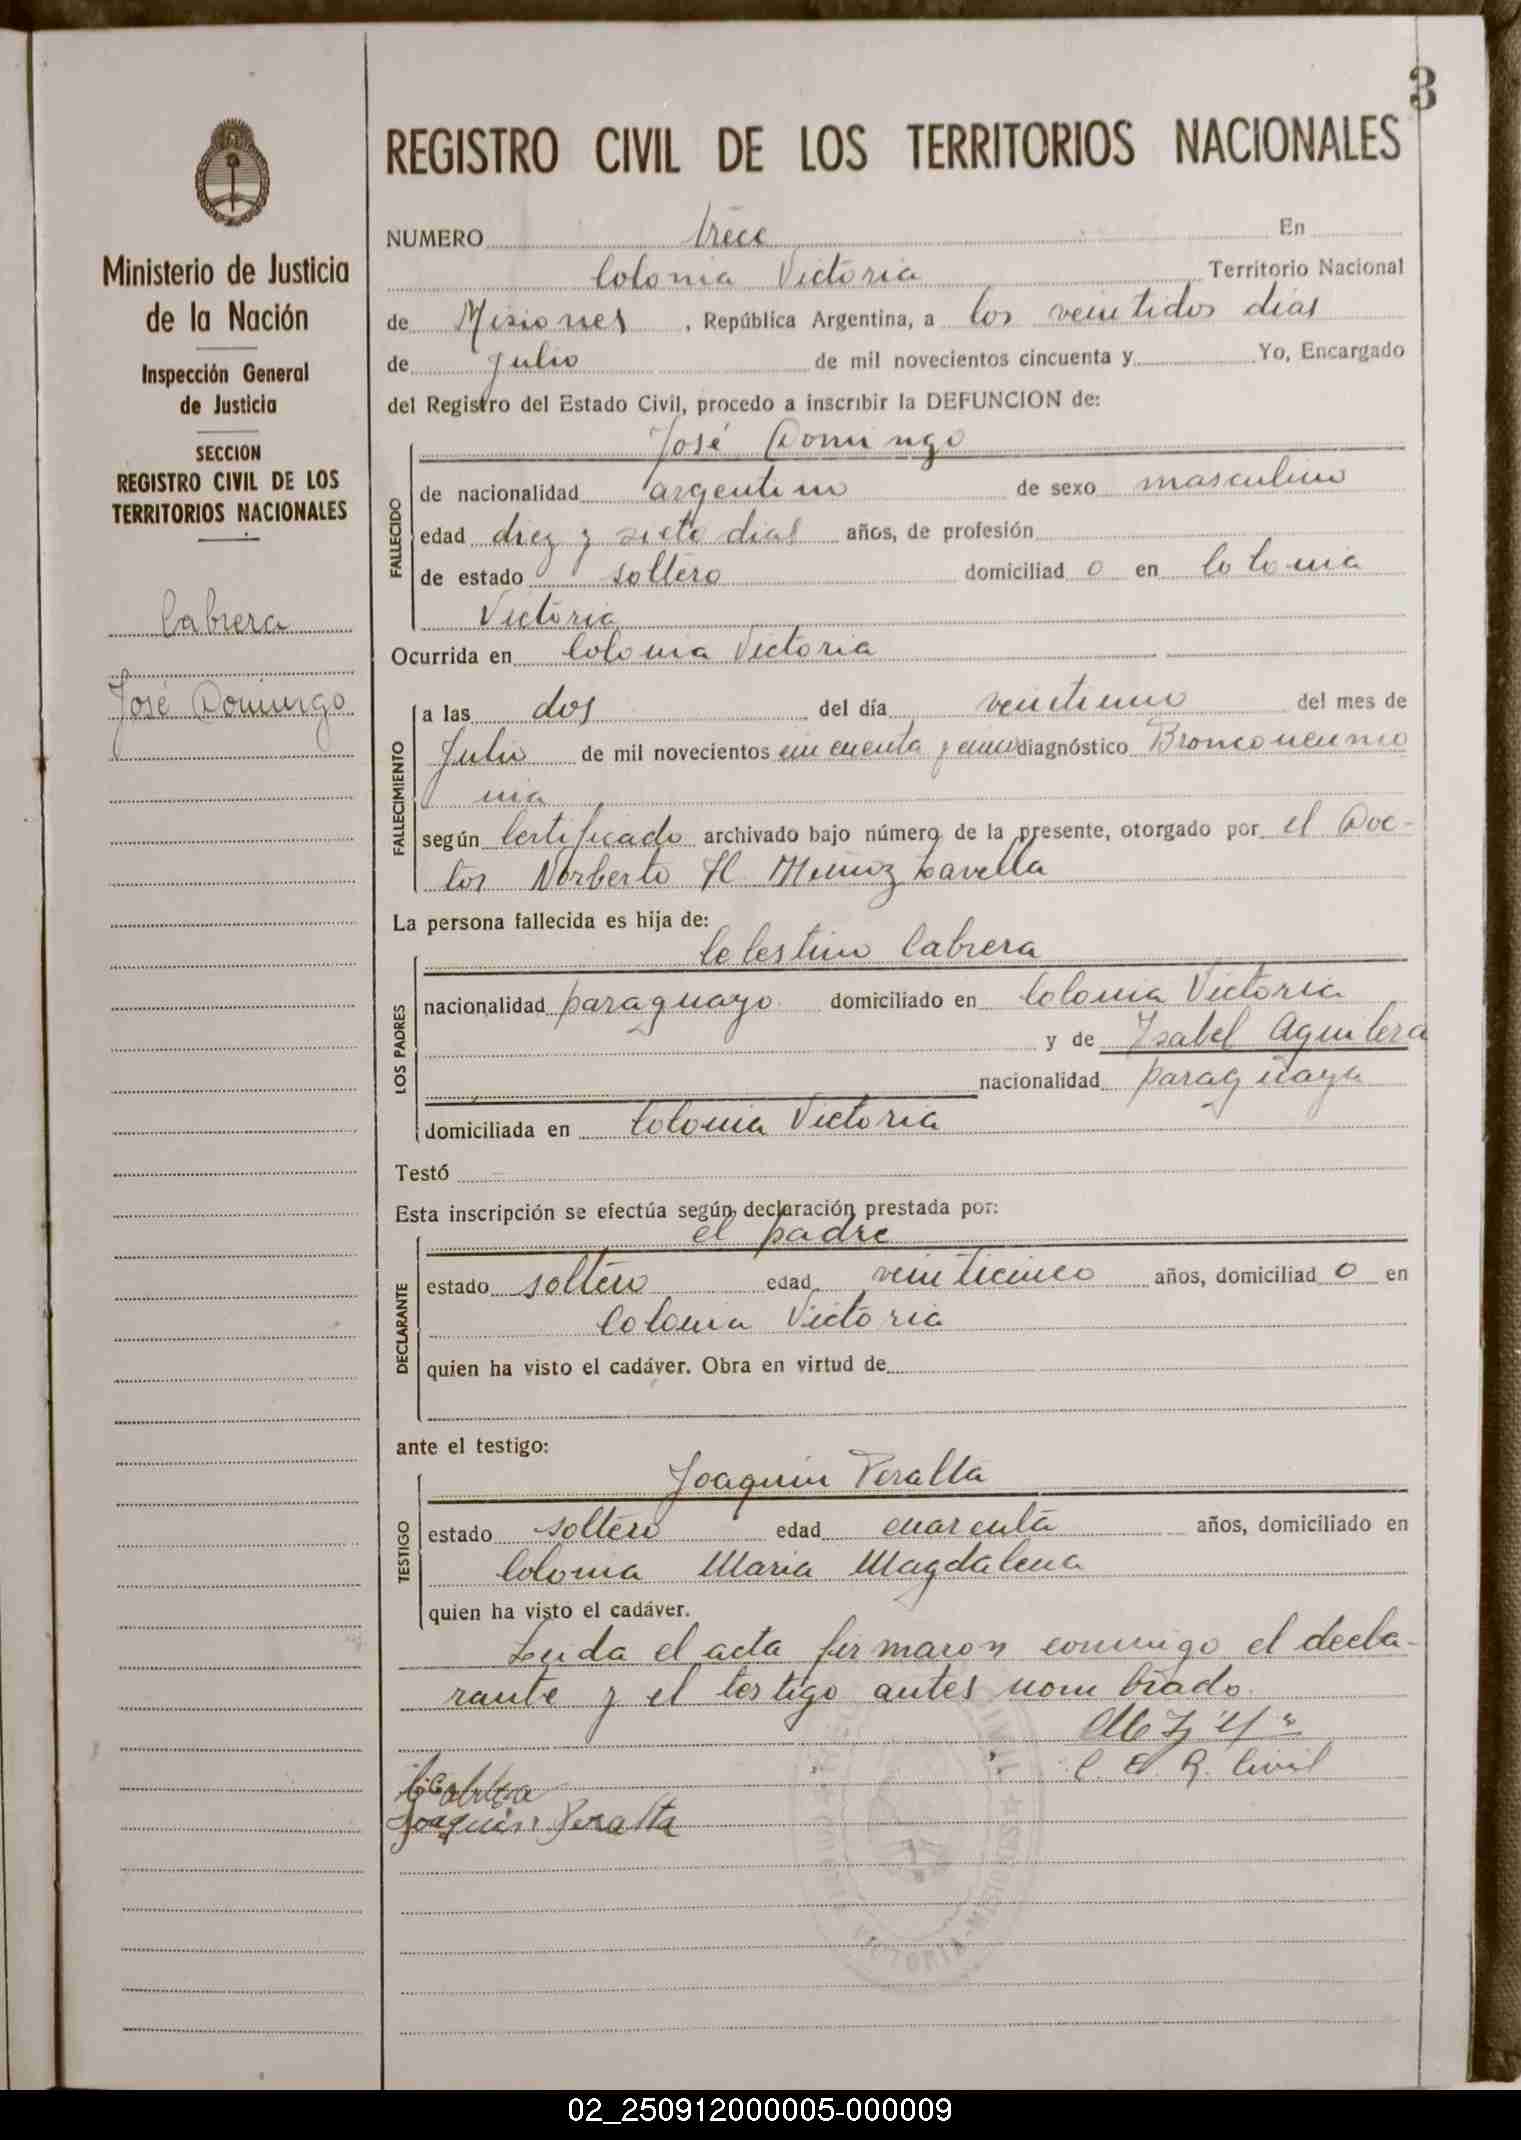 3
REGISTRO CIVIL DE LOS TERRITORIOS NACIONALES
Ministerio de Justicia
de la Nación
Inspección General
de Justicia
SECCION
REGISTRO CIVIL DE LOS
TERRITORIOS NACIONALES
Cabrera
José Domingo
NUMERO trece En
Colonia Victoria Territorio Nacional
de Misiones, República Argentina, a los veintidos dias
de Julio de mil novecientos cincuenta y Yo, Encargado
del Registro del Estado Civil, procedo a inscribir la DEFUNCION de:
José Domingo
FALLECIDO
de nacionalidad argentino de sexo masculino
edad diez y siete dias años, de profesión
de estado soltero domiciliad o en Colonia
Victoria
Ocurrida en Colonia Victoria
FALLECIMIENTO
a las dos del día veintiuno del mes de
Julio de mil novecientos cincuenta y diagnóstico Bronconeumo
nia
según Certificado archivado bajo número de la presente, otorgado por el Doc-
tor Norberto H. Muñoz
La persona fallecida es hija de:
Celestino Cabrera
LOS PADRES
nacionalidad paraguayo domiciliado en Colonia Victoria
y de Ysabel Aguilera
nacionalidad paraguaya
domiciliada en Colonia Victoria
Testó
Esta inscripción se efectúa según declaración prestada por:
el padre
DECLARANTE
estado soltero edad veinticinco años, domiciliad o en
Colonia Victoria
quien ha visto el cadáver. Obra en virtud de
ante el testigo:
Joaquin Peralta
TESTIGO
estado soltero edad cuarenta años, domiciliado en
Colonia Maria Magdalena
quien ha visto el cadáver.
Leida el acta firmaron conmigo el decla-
rante y el testigo antes nombrado.
E. d R. Civil
C. Cabrera
Joaquin Peralta
VICTORIA - MISIONES
02_250912000005-000009